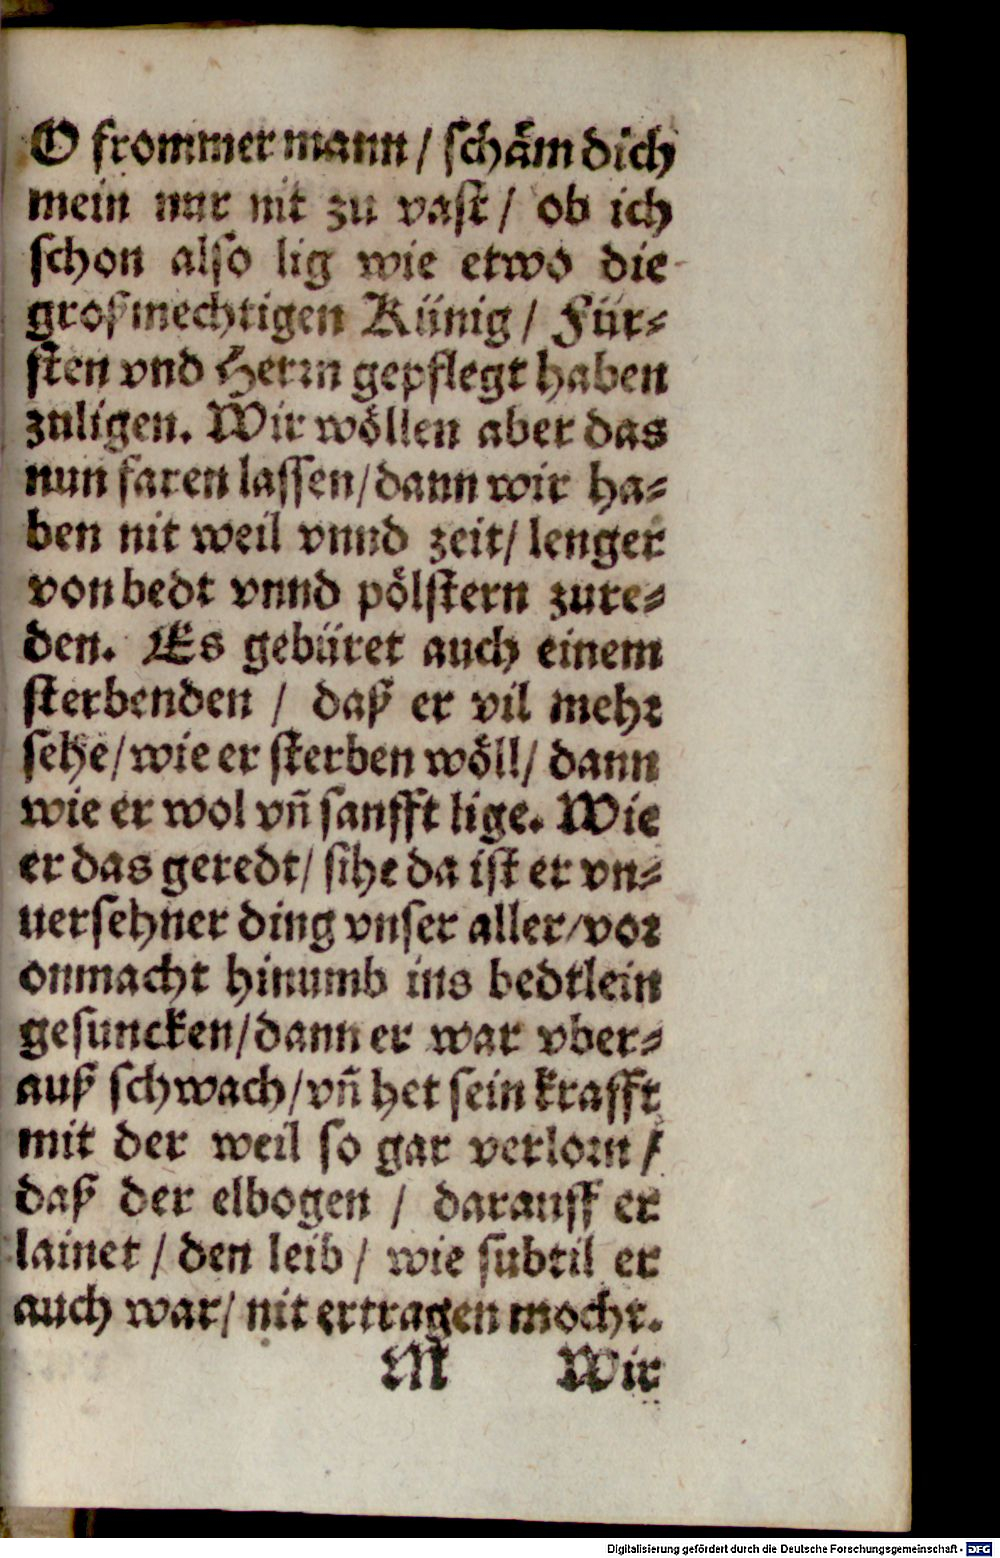 O frommer mann / schäm dich
mein nur nit zu vast / ob ich
schon also lig wie etwo die
großmechtigen Künig / Für⸗
sten vnd Herrn gepflegt haben
zuligen. Wir wöllen aber das
nun faren lassen / dann wir ha⸗
ben nit weil vnnd zeit / lenger
von bedt vnnd pölstern zure⸗
den. Es gebüret auch einem
sterbenden / daß er vil mehr
sehe / wie er sterben wöll / dann
wie er wol vñ sanfft lige. Wie
er das geredt / sihe da ist er vn⸗
uersehner ding vnser aller / vor
onmacht hinumb ins bedtlein
gesuncken / dann er war vber⸗
auß schwach / vñ het sein krafft
mit der weil so gar verlorn /
daß der elbogen / darauff er
lainet / den leib / wie subtil er
auch war / nit ertragen mocht.
M Wir
Digitalisierung gefördert durch die Deutsche Forschungsgemeinschaft - DFG